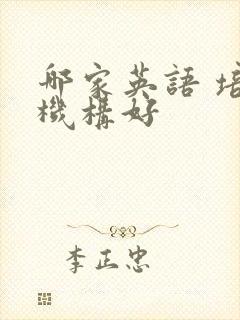 哪家英語 培
機構好
李正忠